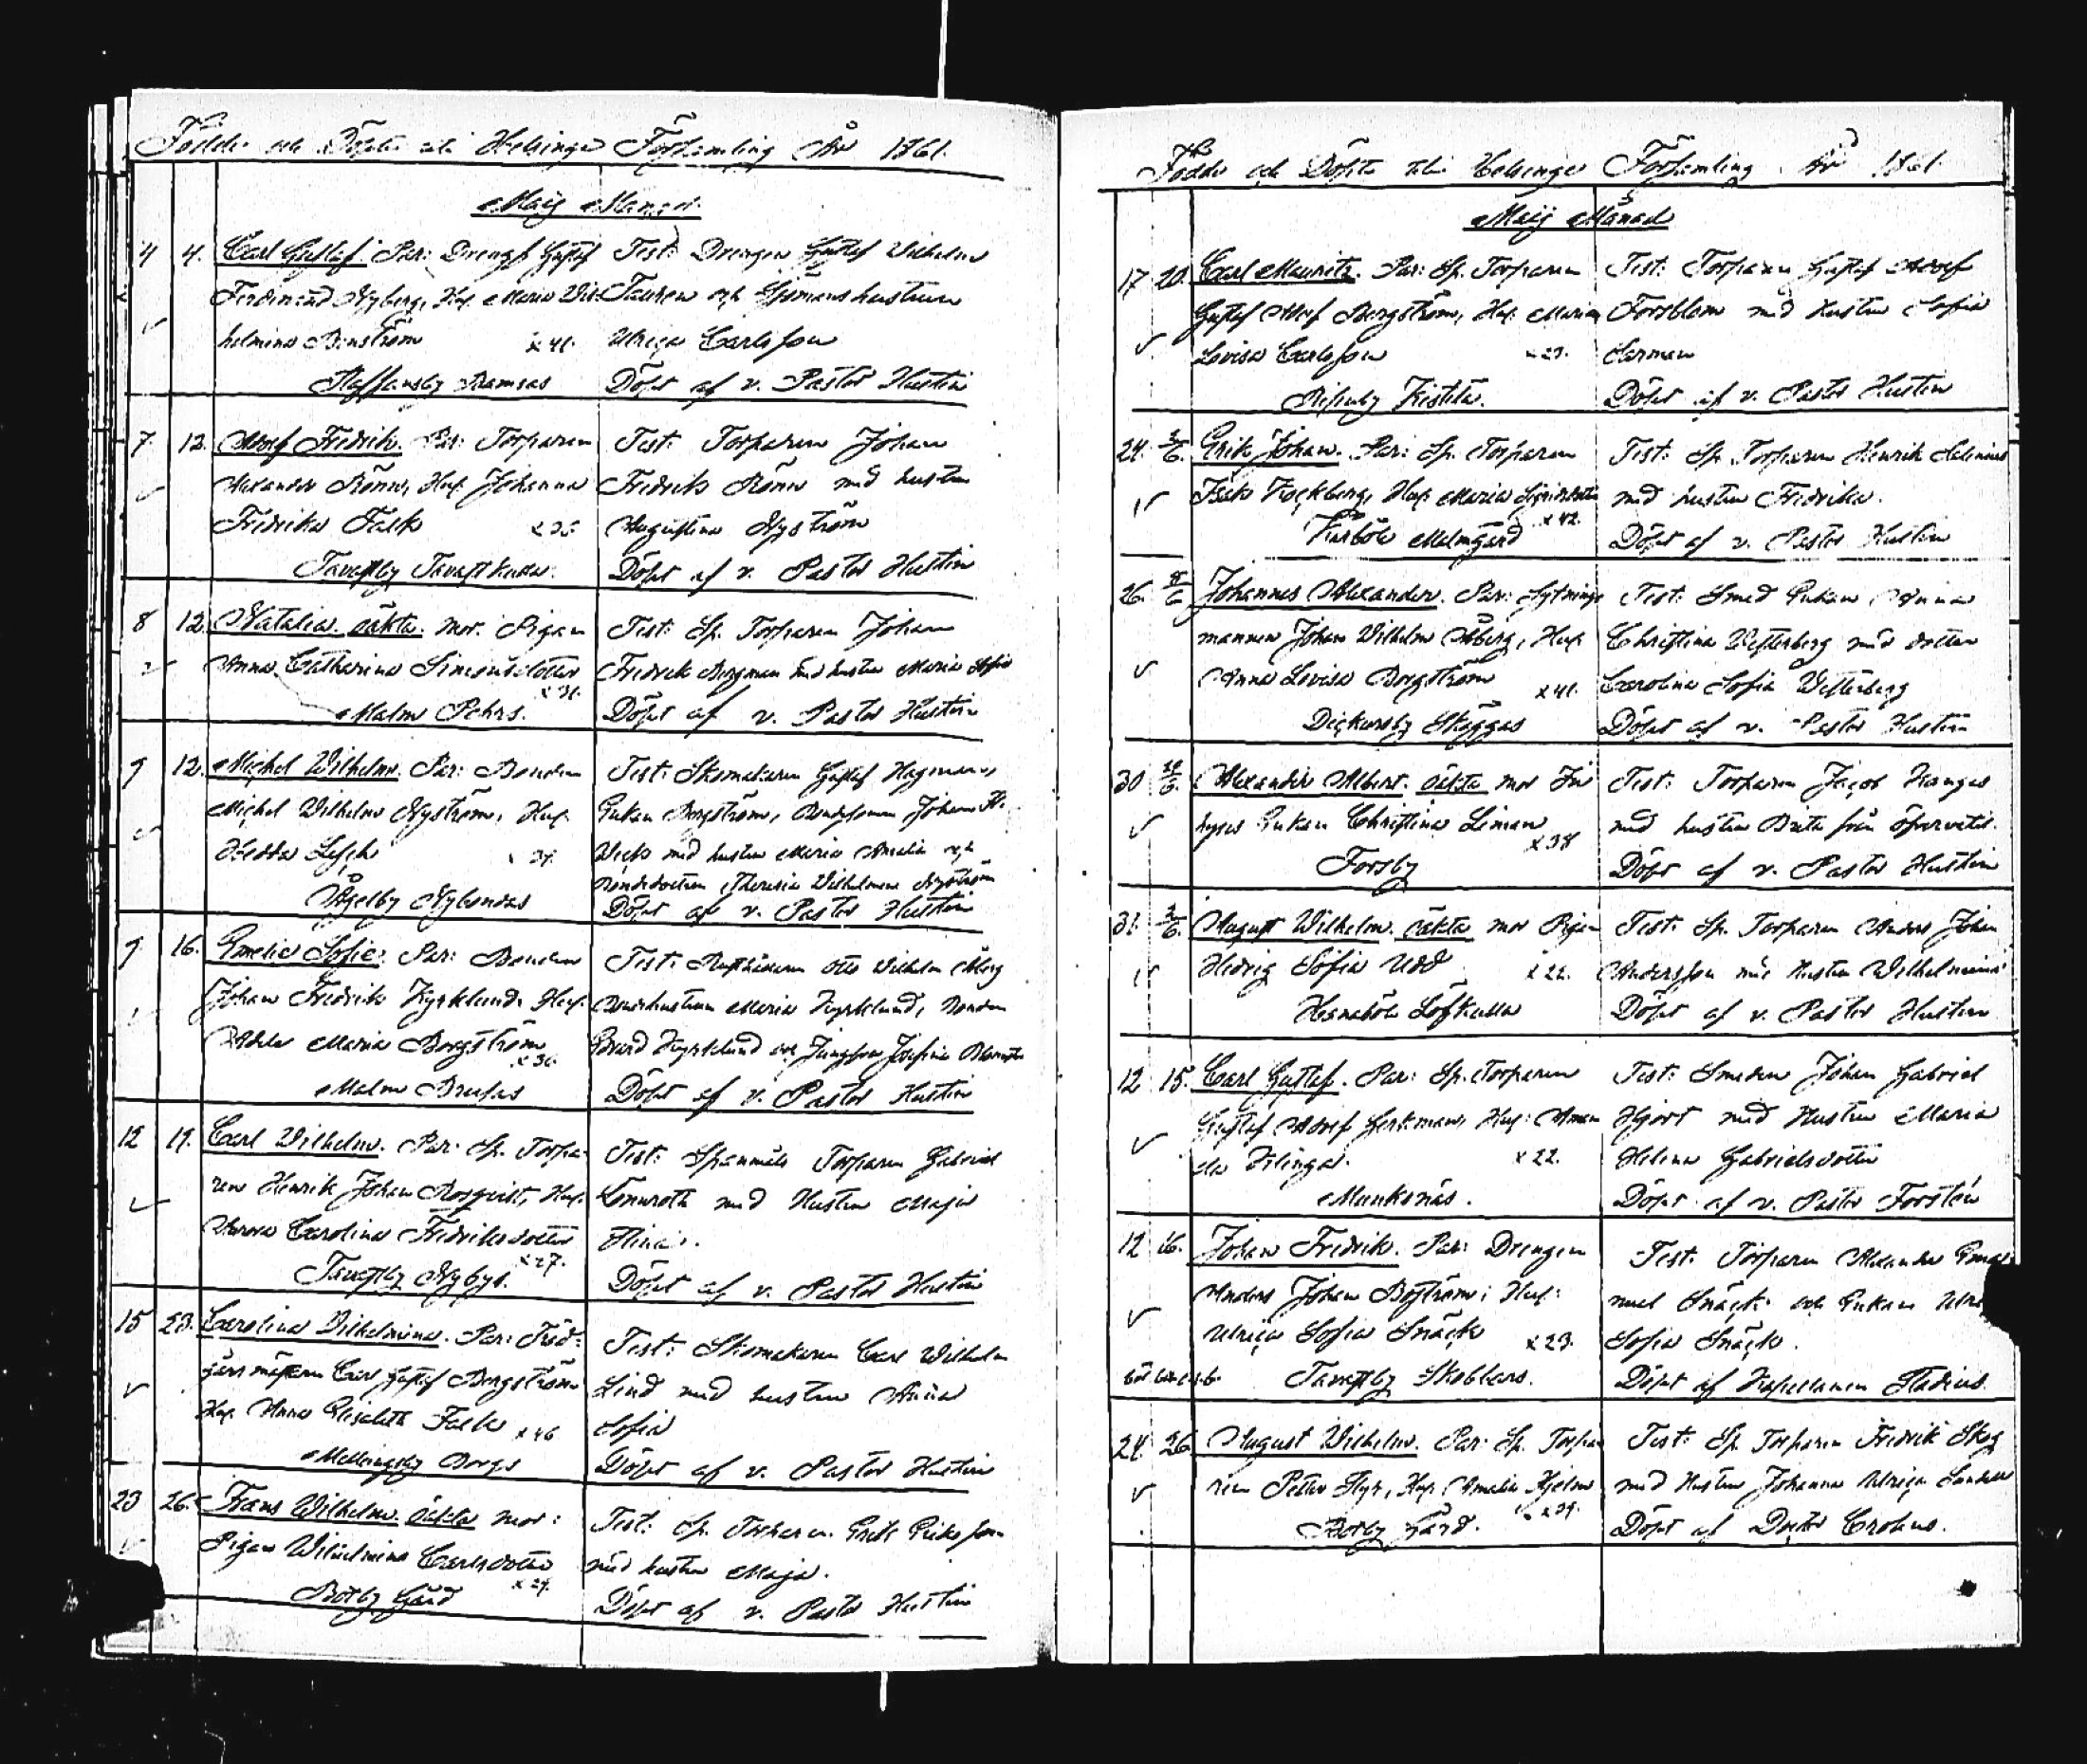 Födde och Döpte uti Helsinge Församling År 1861.
Maij Månad.
4 4. Carl Gustaf. Par: Drengf. Gustaf
Ferdinand Nyberg, Hust. Maria Wil-
helmina Boström x 41.
Staffansby Ramsas
Test: Drengen Gustaf Wilhelm
och Sjömans hustrun
Ulrica Carlsson
Döpt af v. Pastor Hustin
7 12. Adolf Fredrik. Par: Torparen
Alexander Rönn, Hust. Johanna
Fredrika Falk
Tavastby Tavastkulla.
Test: Torparen Johan
Fredrik Rönn med hustru
Augustina Nyström
Döpt af v. Pastor Hustin
8 12. Natalia. oäkta. Mor: Pigan
Anna Catharina Simonsdotter
x 31.
Malm Pehrs.
Test: Sp. Torparen Johan
Fredrik Bergman med hustru Maria Sofia
Döpt af v. Pastor Hustin
9 12. Michel Wilhelm. Par: Bonden
Michel Wilhelm Nyström, Hust.
Hedda
Åggelby Nybondas
Test: Skomakaren Gustaf Hagman,
Enkan Bergström, Bondesonen Johan
med hustru Maria Amalia och
Bondedottren Theresia Wilhelmina Nyström
Döpt af v. Pastor Hustin
9 16. Emelie Sofie. Par: Bonden
Johan Fredrik Kyrklund, Hust.
Maria Bergström
x 36.
Malm Brusas
Test: Rusthållaren Otto Wilhelm Åberg
Bondhustrun Maria Kyrklund, Bonden
Kyrklund och Jungfru Josefina
Döpt af v. Pastor Hustin
12 19. Carl Wilhelm. Par: Sp. Torpa-
ren Henrik Johan Rosqvist, Hust.
Carolina Fredriksdotter
x 27.
Tavastby Nybys.
Test: Spanmåls Torparen Gabriel
Lönnroth med Hustru Maja
Stina.
Döpt af v. Pastor Hustin
15 23. Carolina Wilhelmina. Par: Träd-
gårdsmästaren Carl Gustaf Bergström
Hust. Anna Elisabeth Falk x 46
Mellungsby Borgs
Test: Skomakaren Carl Wilhelm
Lind med hustru Anna
Sofia
Döpt af v. Pastor Hustin
23 26. Frans Wilhelm. oäkta mor:
Pigan Wilhelmina Carlsdotter
Botby Gård
Test: Sp. Torparen Erik Eriksson
med hustru Maja.
Döpt af v. Pastor Hustin
Födde och Döpte uti Helsinge Församling År 1861
Maij Månad
17 20. Carl Mauritz. Par: Sp. Torparen
Gustaf Adolf Bergström, Hust. Maria
Lovisa Carlsson
Test: Torparen Gustaf Adolf
Forsblom med hustru Sofia
Döpt af v. Pastor Hustin
24. 2/6. Erik Johan. Par: Sp. Torparen
Isak Hust. Maria
x 42.
Kårböle Malmgård
Test: Sp. Torparen Henrik Salenius
med hustru Fredrika.
Döpt af v. Pastor Hustin
26. Johannes Alexander. Par: Sytnings
mannen Johan Wilhelm Åberg, Hust.
Anna Lovisa Bergström x 41.
Dickursby Skäggas
Test: Smed Enkan Anna
Christina Westerberg med dotter
Carolina Sofia Westerberg
Döpt af v. Pastor Hustin
30 Alexander Albert. oäkta mor In
hyses Enkan Christina Liman
x 38
Forsby
Test: Torparen Jacob
med hustru Brita från Öfvervetil.
Döpt af v. Pastor Hustin
31. 2/6. August Wilhelm. oäkta mor Pigan
Hedvig Sofia Udd x 22.
Hernäböle Löfkulla
Test: Sp. Torparen Anders Johan
Andersson med Hustru Wilhelmina
Döpt af v. Pastor Hustin
12 15. Carl Gustaf. Par: Sp. Torparen
Gustaf Adolf Hust: Aman
da x 22.
Munksnäs.
Test: Smeden Johan Gabriel
Hjort med Hustru Maria
Helena Gabrielsdotter
Döpt af v. Pastor Forstén
12 16. Johan Fredrik. Par: Drengen
Anders Johan Boström, Hust:
Ulrica Sofia Snäck x 23.
Tavastby Skobbars.
Test: Torparen Alexander Ema
nuel Snäck och Enkan Ulri
Sofia Snäck.
Döpt af Kapellanen Stadius.
24. 26 August Wilhelm. Par: Sp. Torpa
ren Petter Nyr, Hust. Amalia Hjelm
Botby Gård.
Test: Sp. Torparen Fredrik Skog
med Hustru Johanna Ulrica
Döpt af Doctor Crohns.